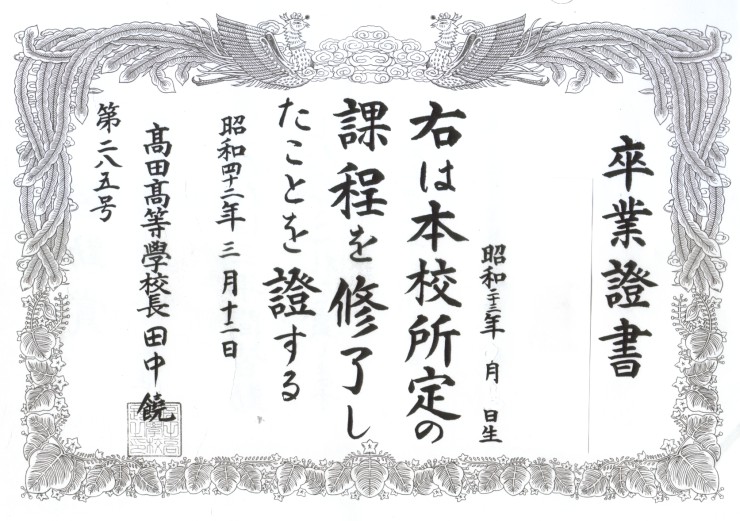 卒業證書
昭和二十三年 月 日生
右は本校所定の
課程を修了し
たことを證する
昭和四十二年三月十二日
髙田髙等學校長 田中 饒
第二八五号